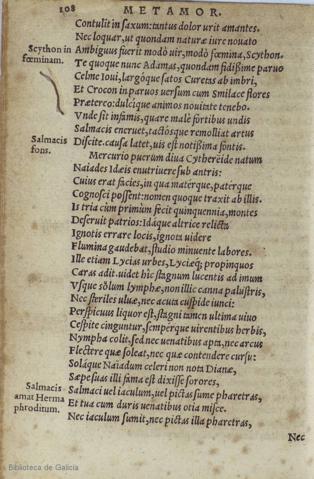 108 METAMOR.
Contulit in saxum: tantus dolor urit amantes.
Nec loquar, ut quondam naturæ iure nouato
Scython in fœminam.
Ambiguus fuerit modò uir, modò fœmina, Scython.
Te quoque nunc Adamas, quondam fidißime paruo
Celme Ioui, largóque satos Curetas ab imbri,
Et Crocon in paruos uersum cum Smilace flores
Prætereo: dulcique animos nouitate tenebo.
Vnde sit infamis, quare malè fortibus undis
Salmacis eneruet, tactósque remolliat artus
Salmacis fons.
Discite. causa latet, uis est notißima fontis.
Mercurio puerum diua Cythereïde natum
Naiades Idæis enutriuere sub antris:
Cuius erat facies, in qua matérque, patérque
Cognosci poßent: nomen quoque traxit ab illis.
Is tria cùm primùm fecit quinquennia, montes
Deseruit patrios: Idáque altrice relicta
Ignotis errare locis, ignota uidere
Flumina gaudebat, studio minuente labores.
Ille etiam Lycias urbes, Lyciæq; propinquos
Caras adit. uidet hîc stagnum lucentis ad imum
Vsque sõlum lymphæ, non illic canna palustris,
Nec steriles uluæ, nec acuta cuspide iunci:
Perspicuus liquor est, stagni tamen ultima uiuo
Cespite cinguntur, sempérque uirentibus herbis,
Nympha colit, sed nec uenatibus apta, nec arcus
Flectere quæ soleat, nec quæ contendere cursu:
Soláque Naiadum celeri non nota Dianæ,
Sæpe suas illi fama est dixiße sorores,
Salmacis amat Hermaphroditum.
Salmaci uel iaculum, uel pictas sume pharetras,
Et tua cum duris uenatibus otia misce.
Nec iaculum sumit, nec pictas illa pharetras,
Nec
Biblioteca de Galicia